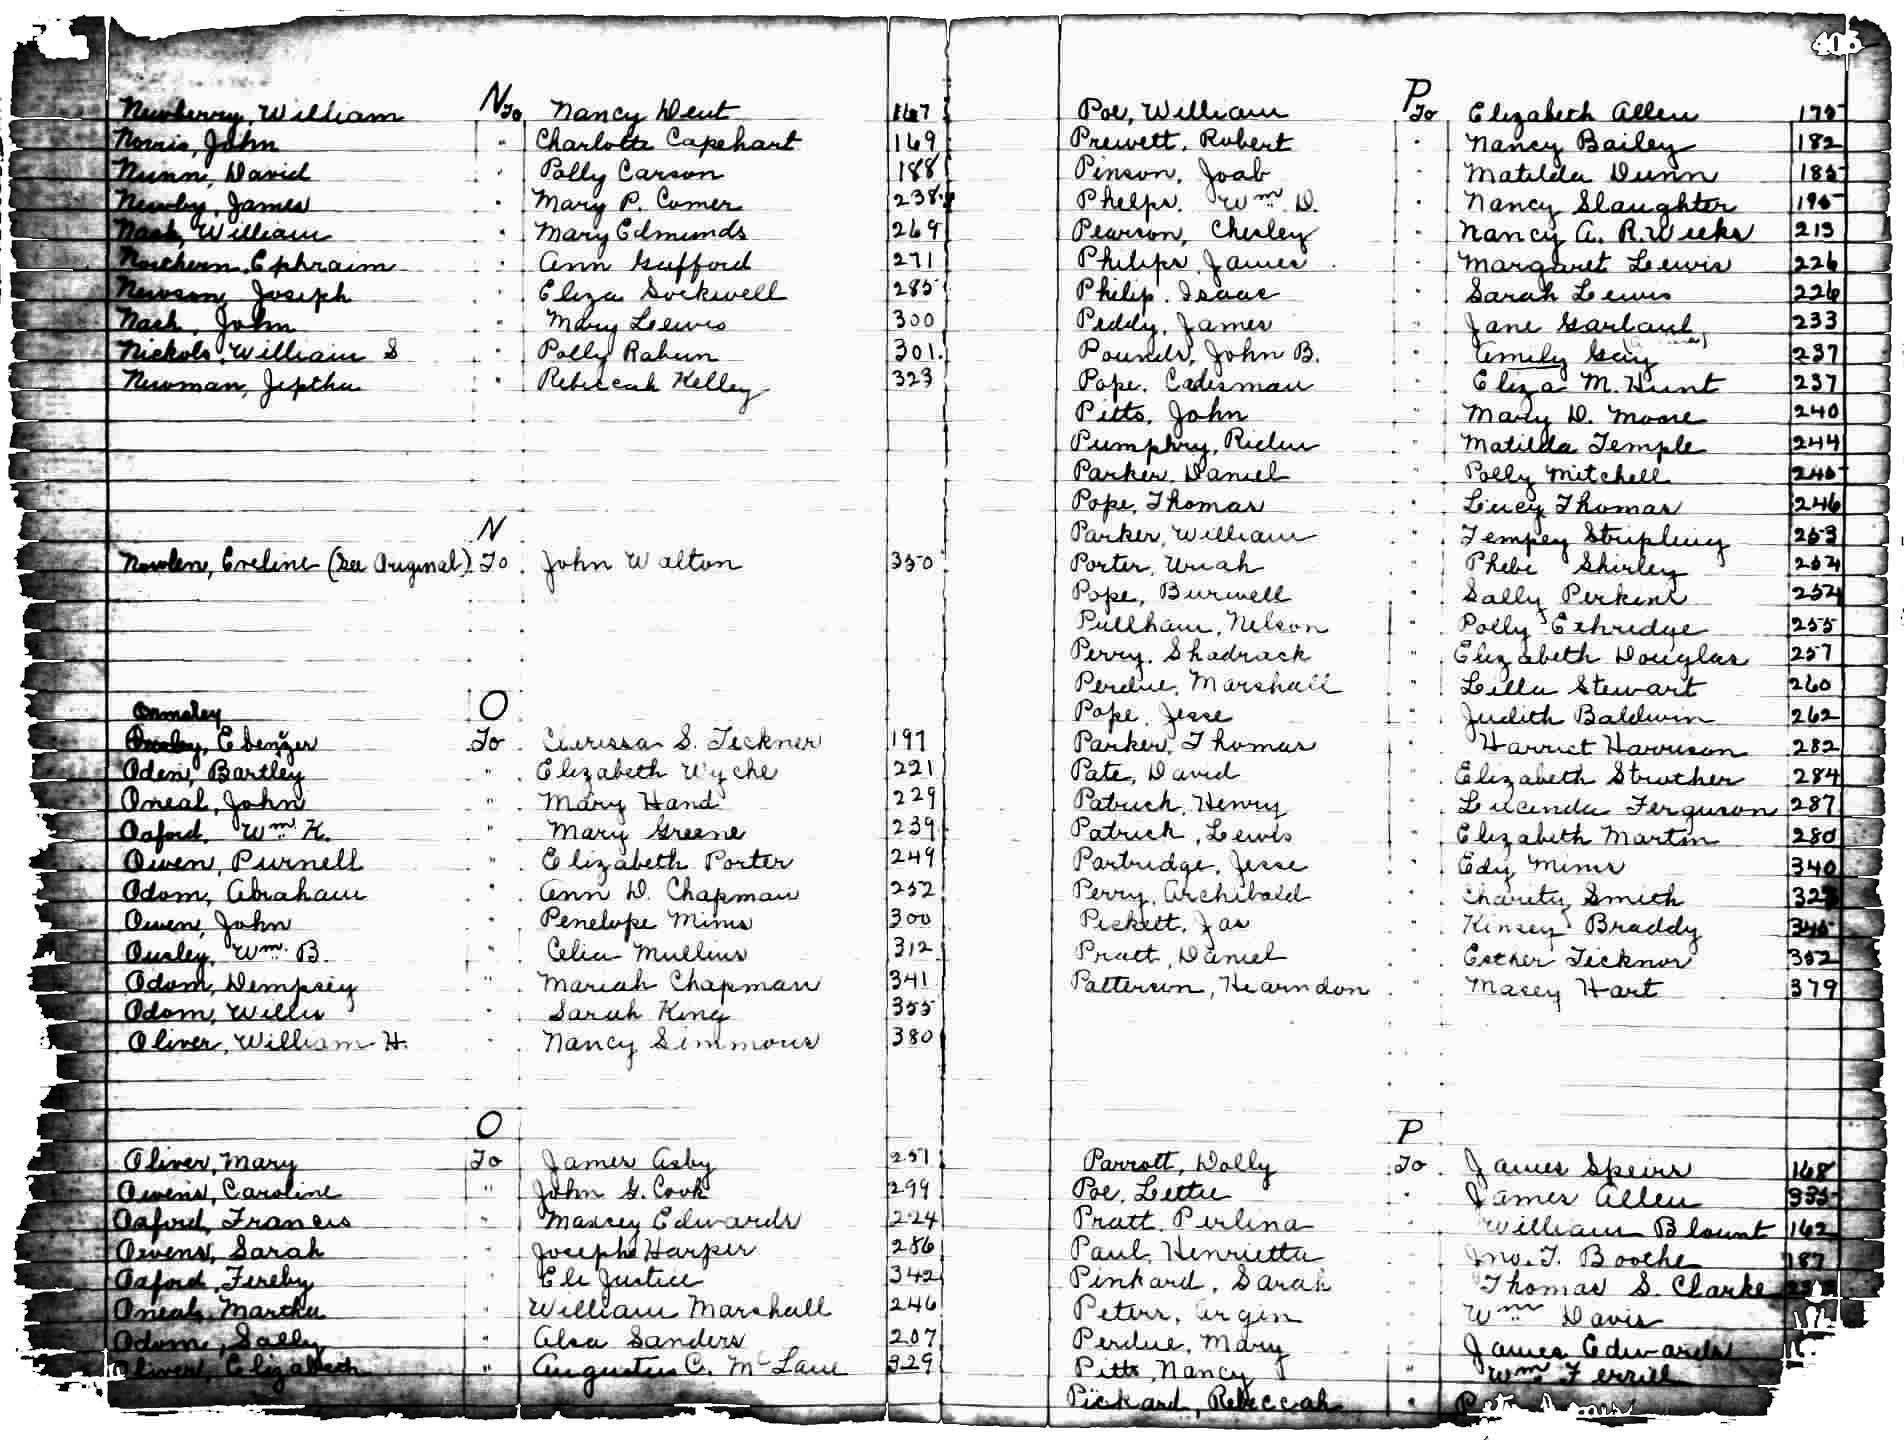 405
N
Newberry, William To Nancy Dent 167
Norris, John " Charlotte Capehart 169
Nunn, David " Polly Carson 188
Newby, James " Mary P. Comer 238
Nash, William " Mary Edmunds 269
Northern, Ephraim " Ann Gafford 271
Newson, Joseph " Eliza Sockwell 285
Nash, John " Mary Lewis 300
Nickols, William S " Polly Rabun 301
Newman, Jeptha " Rebeccah Kelley 323
N
Nowlen, Eveline (See Original) To John Walton 350
O
Ormsley
Ebenezer To Clerissa S. Tickner 197
Oden, Bartley " Elizabeth Wyche 221
Oneal, John " Mary Hand 229
Oxford, Wm K. " Mary Greene 239
Owen, Purnell " Elizabeth Porter 249
Odom, Abraham " Ann D. Chapman 252
Owen, John " Penelope Mims 300
Ousley, Wm B. " Celia Mullins 312
Odom, Dempsey " Mariah Chapman 341
Odom, Willis " Sarah King 355
Oliver, William H. " Nancy Simmons 380
O
Oliver, Mary To James Asby 251
Owens, Caroline " John G. Cook 299
Oxford, Francis " Massey Edwards 224
Owens, Sarah " Joseph Harper 286
Oxford, Fereby " Eli Justice 342
Oneal, Martha " William Marshall 246
Odom, Sally " Alsa Sanders 207
Oliver, Elizabeth " Augustus C. McLane 329
P
Poe, William To Elizabeth Allen 175
Prewett, Robert " Nancy Bailey 182
Pinson, Joab " Matilda Dunn 185
Phelps, Wm D. " Nancy Slaughter 195
Pearson, Chesley " Nancy A. R. Weeks 213
Philips, James " Margaret Lewis 226
Philip, Isaac " Sarah Lewis 226
Peddy, James " Jane Garland 233
Pounds, John B. " Amily Gay 237
Pope, Cadesman " Eliza M. Hunt 237
Pitts, John " Mary D. Moore 240
Pumphry, Riden " Matilda Temple 244
Parker, Daniel " Polly Mitchell 245
Pope, Thomas " Lucy Thomas 246
Parker, William " Tempey Stripling 253
Porter, Uriah " Phebe Shirley 254
Pope, Burwell " Sally Perkins 254
Pullham, Nelson " Polly Ethridge 255
Perry, Shadrack " Elizabeth Douglas 257
Perdue, Marshall " Lilla Stewart 260
Pope, Jesse " Judith Baldwin 262
Parker, Thomas " Harriet Harrison 282
Pate, David " Elizabeth Strother 284
Patrick, Henry " Lucinda Ferguson 287
Patrick, Lewis " Elizabeth Martin 280
Partridge, Jesse " Edy Mims 340
Perry, Archibald " Charity Smith
Pickett, Jas " Kinsey Braddy 345
Pratt, Daniel " Esther Ticknor 352
Patterson, Hearndon " Massey Hart 379
P
Parrott, Dolly To James Speirs 168
Poe, Lettie " James Allen 335
Pratt, Perlina " William Blount 162
Paul, Henrietta " Jno. T. Boothe 187
Pinkard, Sarah " Thomas S. Clarke
Peters, Argin " Wm Davis
Perdue, Mary " James Edwards
Pitts, Nancy " Wm Ferrill
Pickard, Rebeccah "